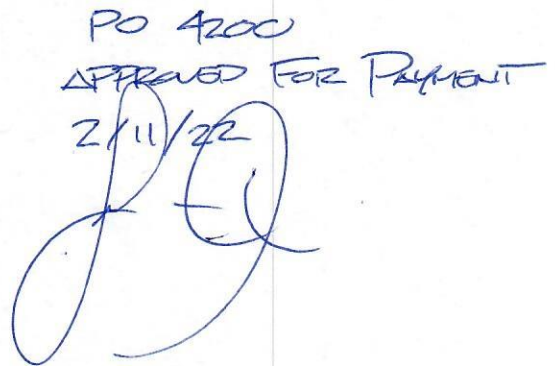 PO 4200
APPROVED FOR PAYMENT
2/11/22